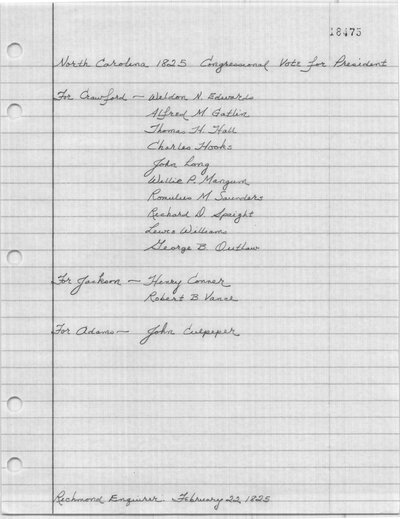 18475
North Carolina 1825 Congressional Vote for President
For Crawford — Weldon N. Edwards
Alfred M Gatlin
Thomas H. Hall
Charles Hooks
John Long
Willie P. Mangum
Romulus M Saunders
Richard D. Speight
Lewis Williams
George B. Outlaw
For Jackson — Henry Conner
Robert B Vance
For Adams — John Culpeper
Richmond Enquirer. February 22, 1825